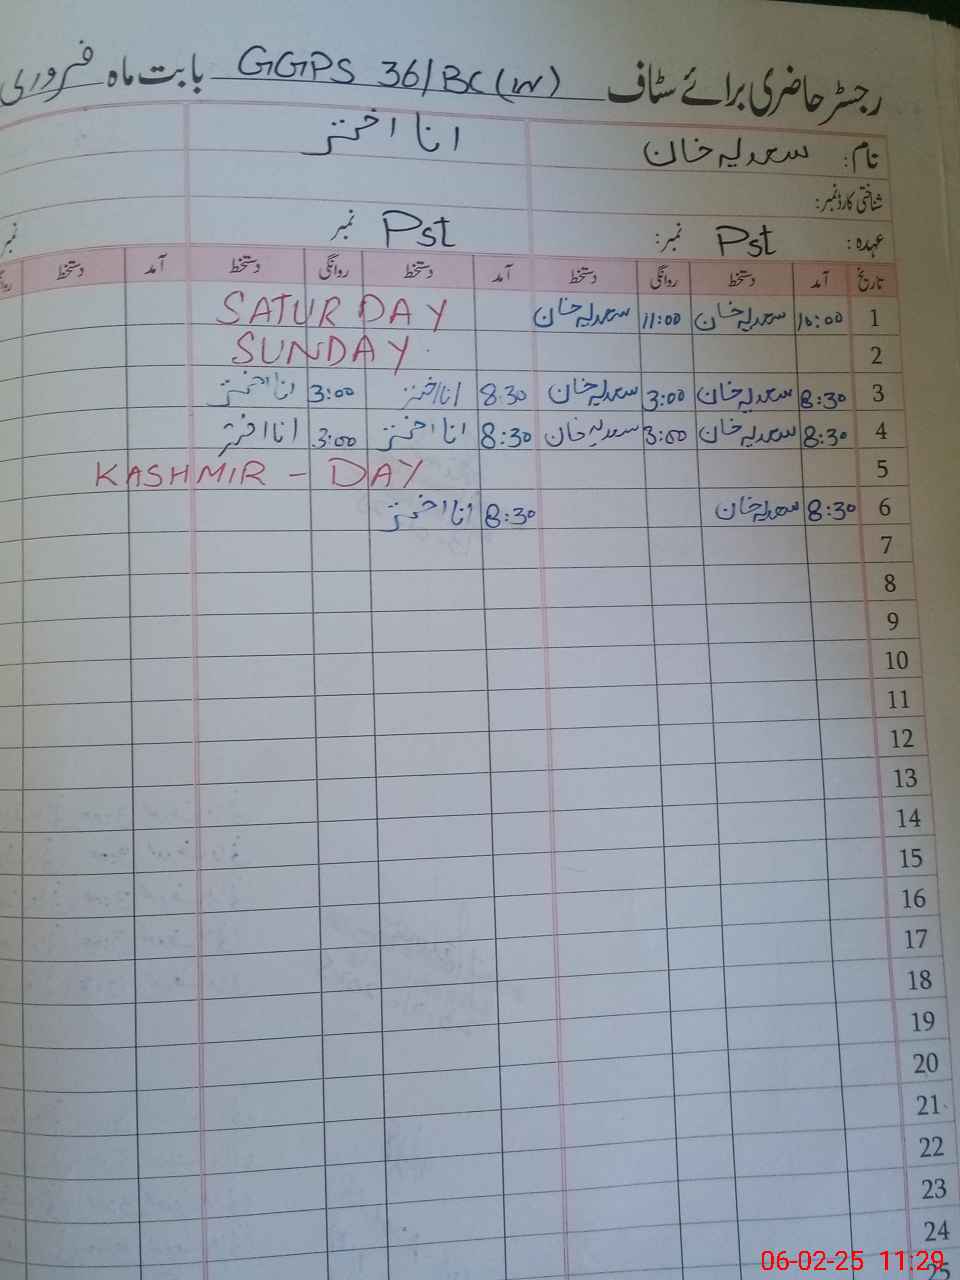 رجسٹر حاضری برائے سٹاف GGPS 36/BC(W) بابت ماہ فروری
نام: سعدیہ خان انا اختر
شناختی کارڈ نمبر:
عہدہ: Pst نمبر: Pst نمبر نمبر
تاریخ آمد دستخط روانگی دستخط آمد دستخط روانگی دستخط آمد دستخط
1 10:00 سعدیہ خان 11:00 سعدیہ خان SATURDAY
2 SUNDAY
3 8:30 سعدیہ خان 3:00 سعدیہ خان 8:30 انا اختر 3:00 انا اختر
4 8:30 سعدیہ خان 3:00 سعدیہ خان 8:30 انا اختر 3:00 انا اختر
5 KASHMIR - DAY
6 8:30 سعدیہ خان 8:30 انا اختر
7
8
9
10
11
12
13
14
15
16
17
18
19
20
21
22
23
24
25
06-02-25 11:29